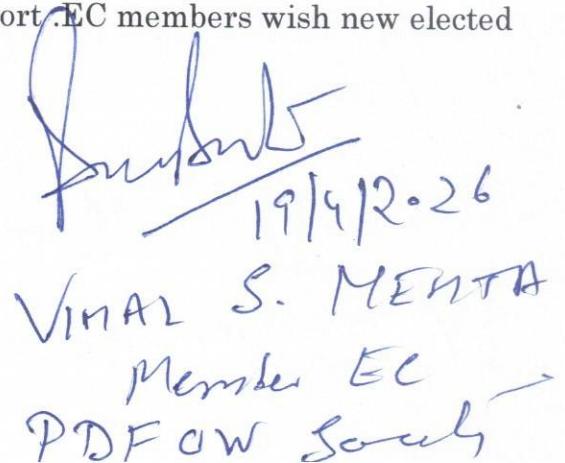 ort .EC members wish new elected
19/4/2026
VIMAL S. MEHTA
Member EC
PDFOW Society